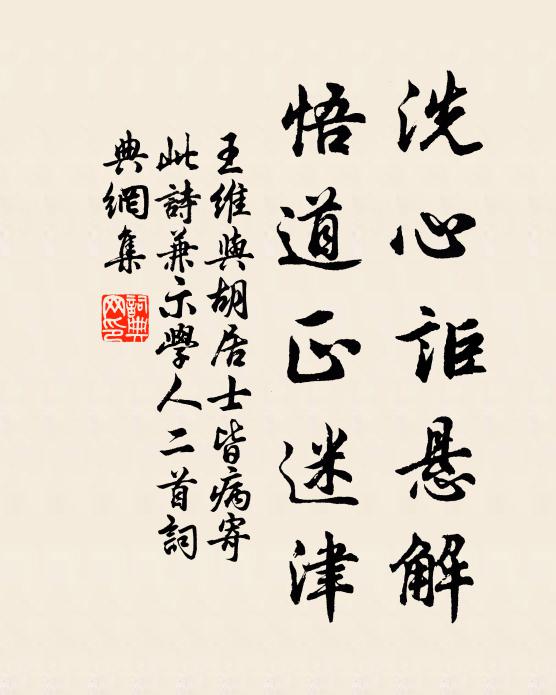 洗心詎悬解
悟道正迷津
王維與胡居士皆病寄
此詩兼示學人二首詞
典網集
詞典网印